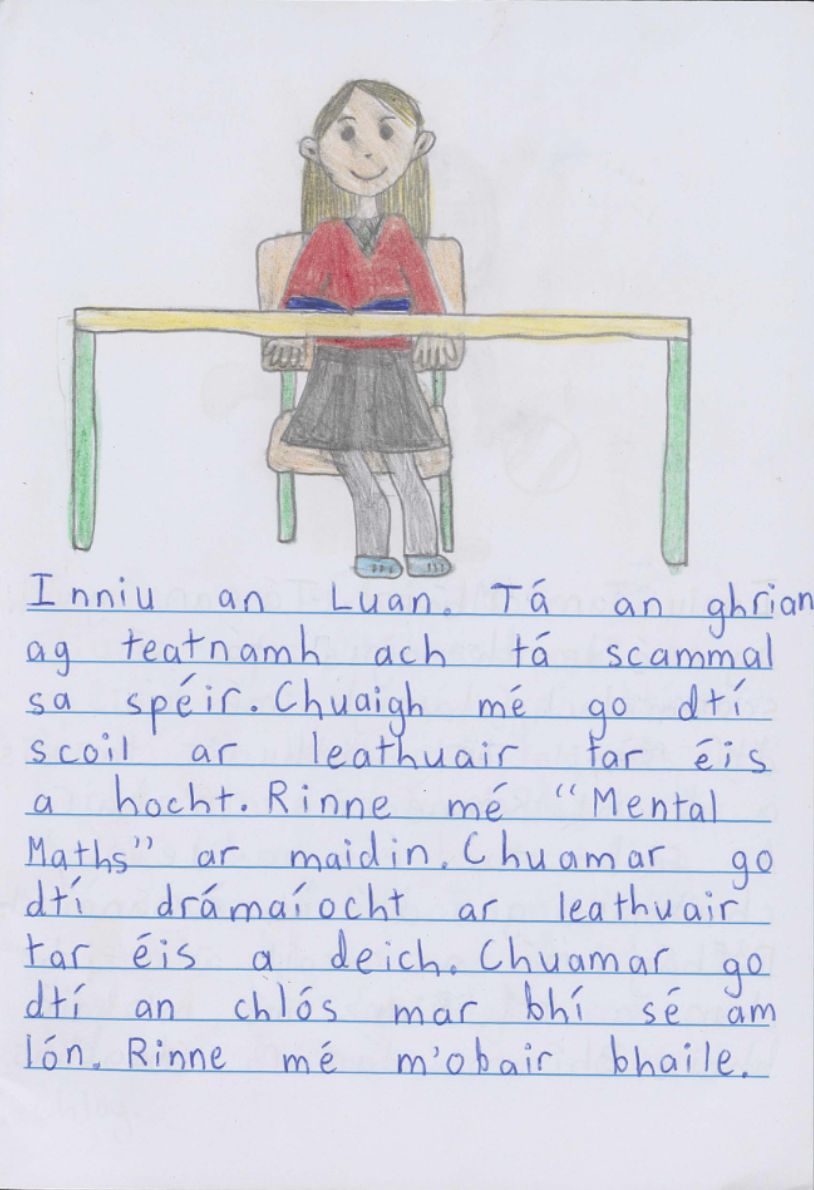 Inniu an Luan. Tá an ghrian
ag teatnamh ach tá scammal
sa spéir. Chuaigh mé go dtí
scoil ar leathuair tar éis
a hocht. Rinne mé “Mental
Maths” ar maidin. Chuamar go
dtí drámaíocht ar leathuair
tar éis a deich. Chuamar go
dtí an chlós mar bhí sé am
lón. Rinne mé m'obair bhaile.